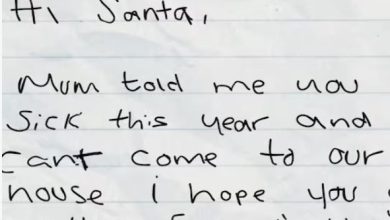 Hi Santa,
Mum told me you
Sick this year and
cant come to our
house i hope you